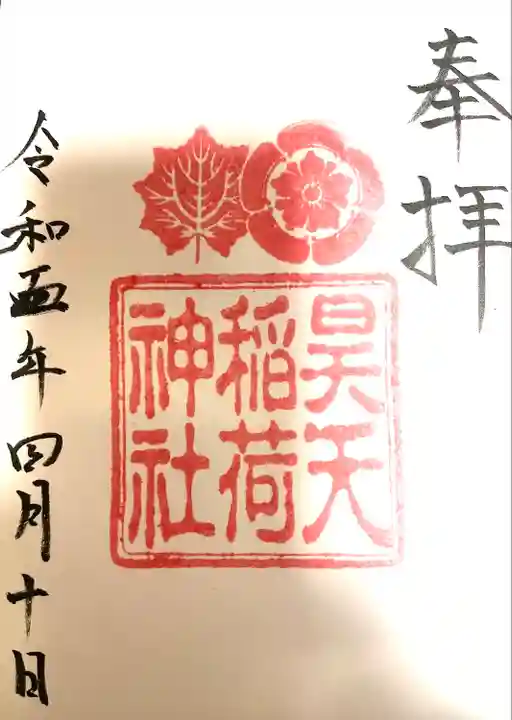 奉拝
昊天
稲荷
神社
令和五年四月十日